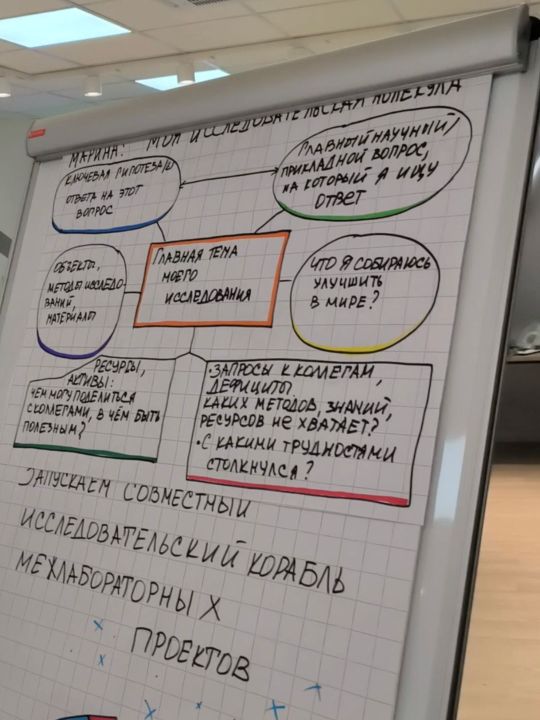 МАРИНА: МОЯ ИССЛЕДОВАТЕЛЬСКАЯ МОЛЕКУЛА
КЛЮЧЕВАЯ ГИПОТЕЗА/Ы
ОТВЕТА НА ЭТОТ
ВОПРОС
ГЛАВНЫЙ НАУЧНЫЙ/
ПРИКЛАДНОЙ ВОПРОС,
НА КОТОРЫЙ Я ИЩУ
ОТВЕТ
ОБЪЕКТЫ,
МЕТОДЫ ИССЛЕДО-
ВАНИЙ,
МАТЕРИАЛЫ
ГЛАВНАЯ ТЕМА
МОЕГО
ИССЛЕДОВАНИЯ
ЧТО Я СОБИРАЮСЬ
УЛУЧШИТЬ
В МИРЕ?
РЕСУРСЫ,
АКТИВЫ:
ЧЕМ МОГУ ПОДЕЛИТЬСЯ
С КОЛЛЕГАМИ, В ЧЁМ БЫТЬ
ПОЛЕЗНЫМ?
• ЗАПРОСЫ К КОЛЛЕГАМ,
ДЕФИЦИТЫ,
КАКИХ МЕТОДОВ, ЗНАНИЙ,
РЕСУРСОВ НЕ ХВАТАЕТ?
• С КАКИМИ ТРУДНОСТЯМИ
СТОЛКНУЛСЯ?
ЗАПУСКАЕМ СОВМЕСТНЫЙ
ИССЛЕДОВАТЕЛЬСКИЙ КОРАБЛЬ
МЕЖЛАБОРАТОРНЫХ
ПРОЕКТОВ